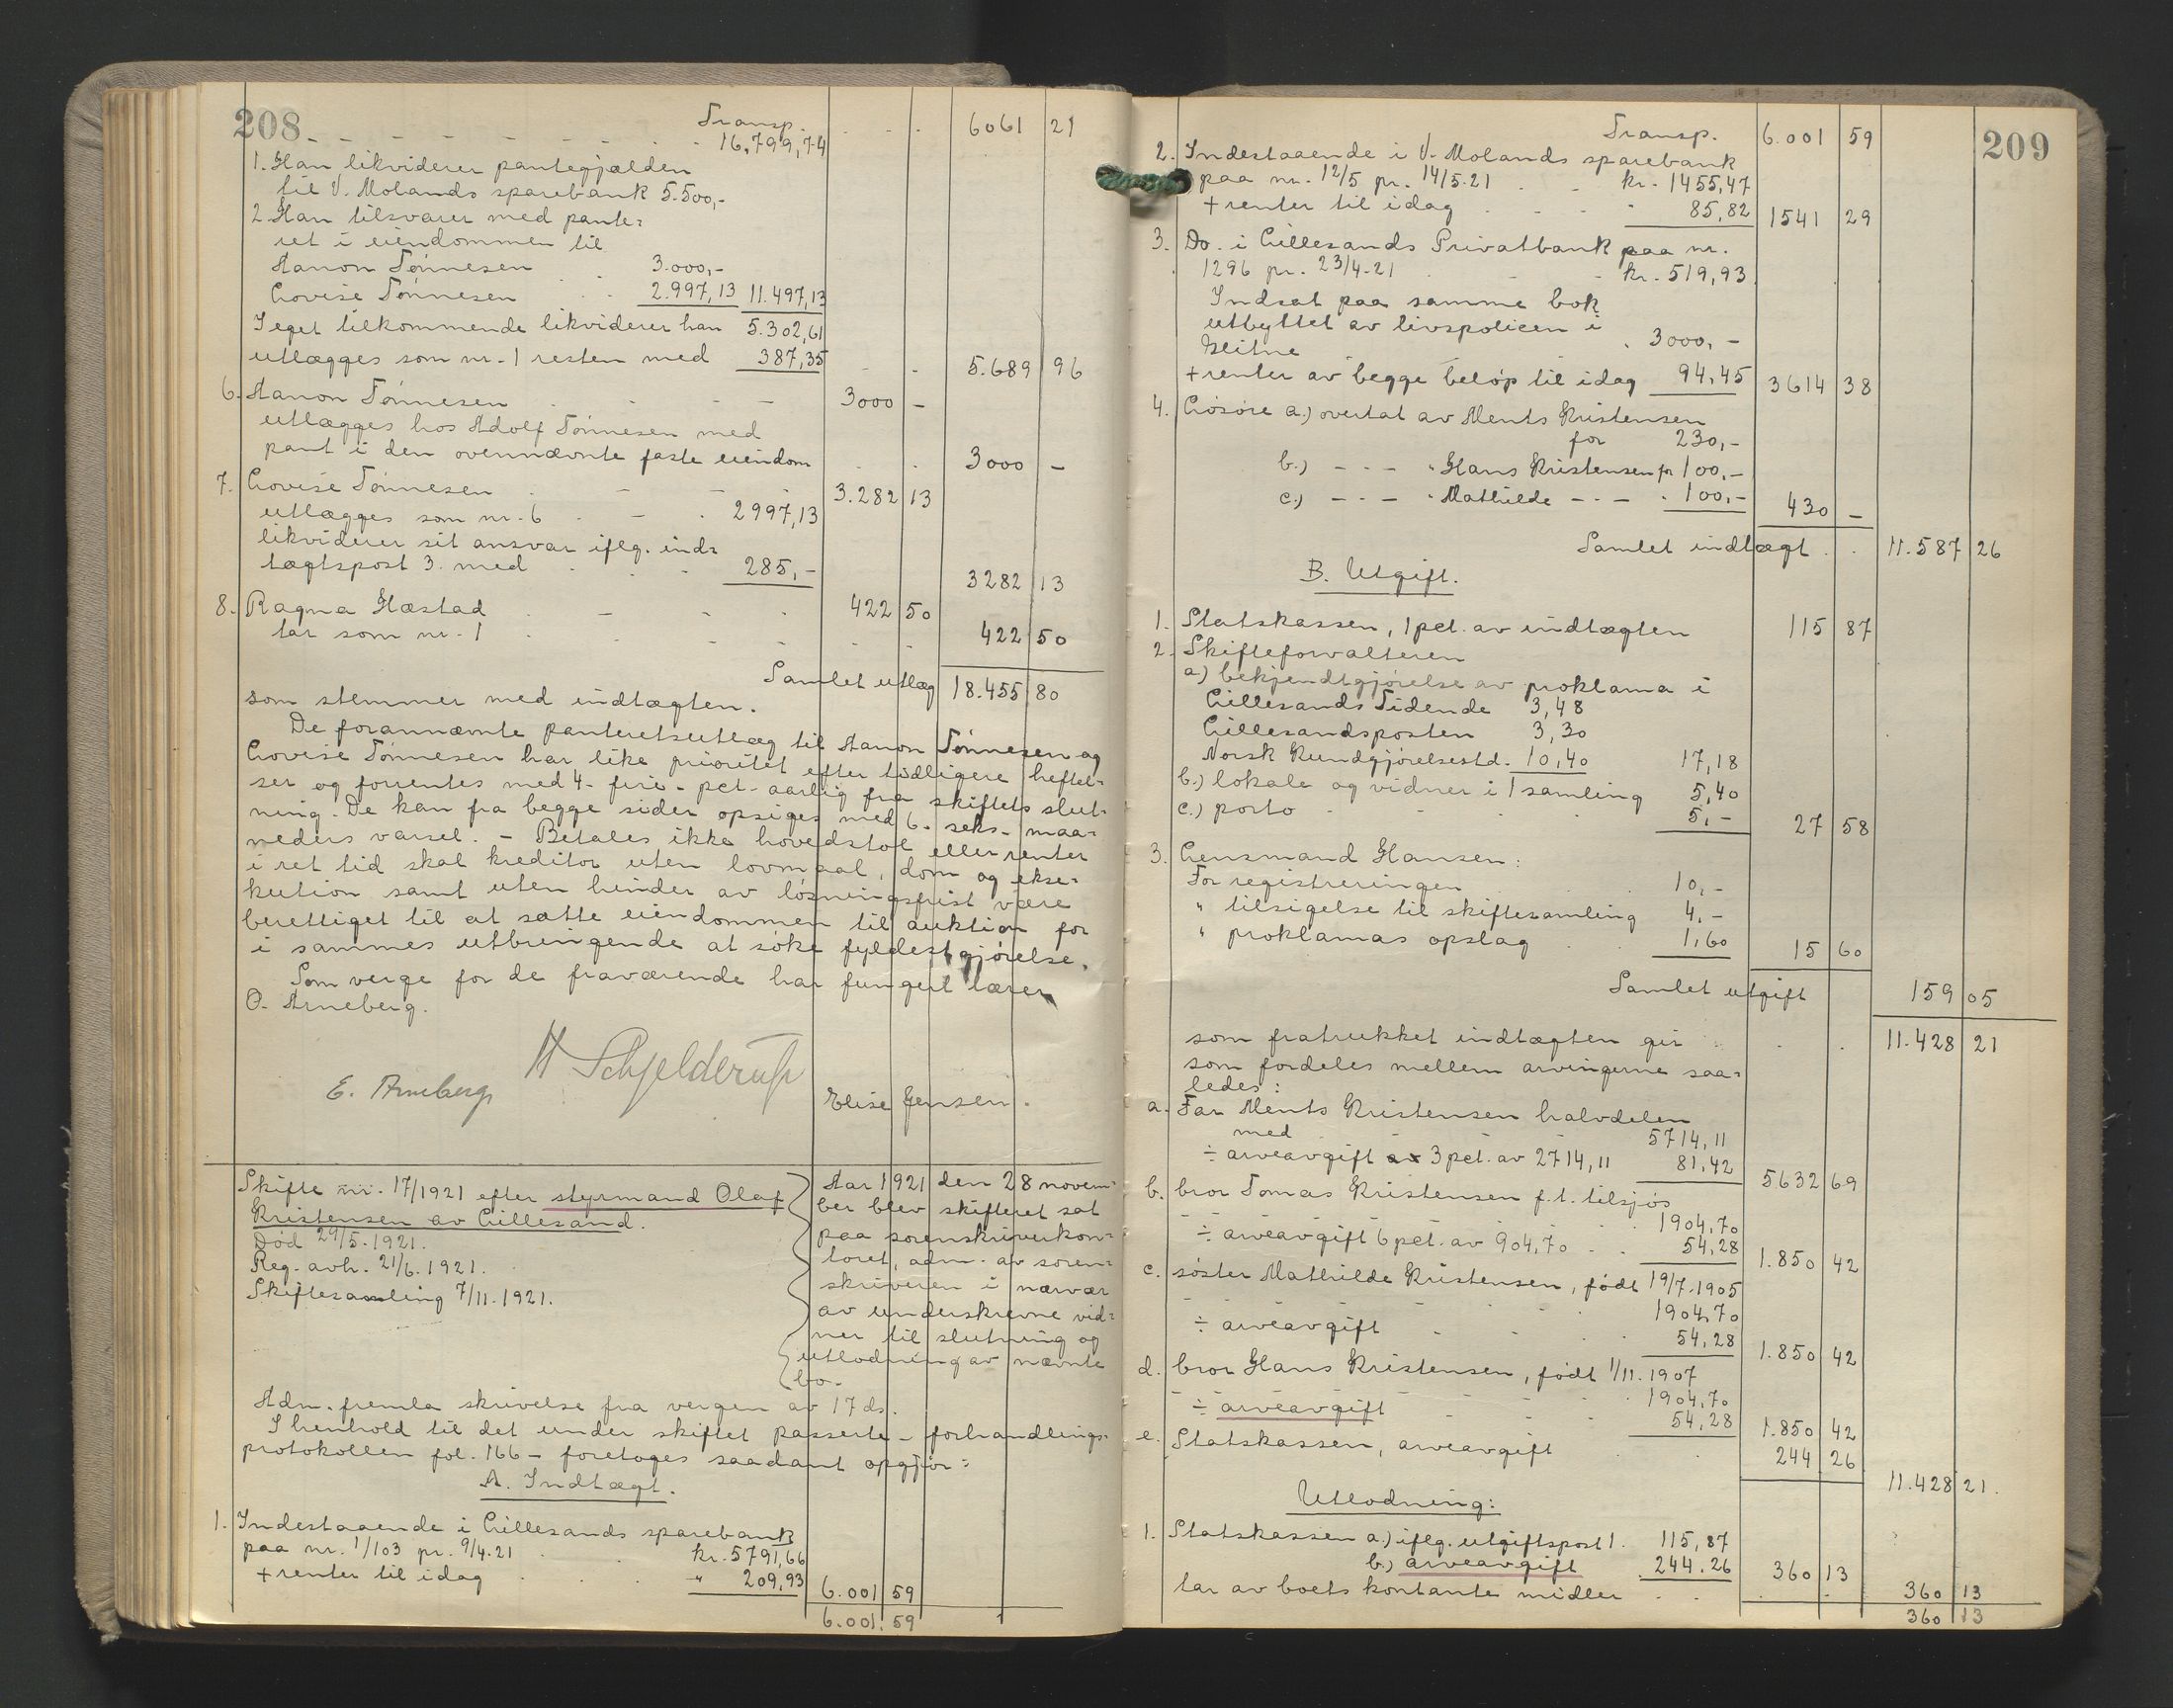 208
Transp. . . . 6061 21
16,799,74
1. Han likviderer pantegjælden
til V. Molands sparebank 5.500,-
2. Han tilsvarer med pante=
ret i eiendommen til
Aanon Tønnesen . . 3.000,-
Lovise Tønnesen . . 2.997,13 11.497,13
I eget tilkommende likviderer han 5.302,61
utlægges som nr. 1 resten med 387,35 5.689 96
6. Aanon Tønnesen . - - - 3000 -
utlægges hos Adolf Tønnesen med
pant i den ovennævnte faste eiendom . . 3000 -
7. Lovise Tønnesen . - - 3.282 13
utlægges som nr. 6 . - . 2997,13
likviderer sit ansvar iflg. ind=
tægtspost 3. med . . . 285,- 3282 13
8. Ragna Hæstad . - - . 422 50
tar som nr. 1 . . - - - 422 50
Samlet utlæg 18.455 80
som stemmer med indtægten.
De forannæmte panteretsutlæg til Aanon Tønnesen og
Lovise Tønnesen har like prioritet efter tidligere heftel-
ser og forrentes med 4 - fire - pct. aarlig fra skiftets slut-
ning. De kan fra begge sider opsiges med 6 - seks - maa=
neders varsel. - Betales ikke hovedstol eller renter
i ret tid skal kreditor uten lovmaal, dom og ekse=
kution samt uten hinder av løsningsfrist være
berettiget til at sætte eiendommen til auktion for
i sammes utbringende at søke fyldestgjørelse.
Som verge for de fraværende har fungert lærer
O. Arneberg.
H Schjelderup
E. Arneberg Elise Jensen.
Skifte nr. 17/1921 efter styrmand Olaf
Kristensen av Lillesand.
Død 29/5. 1921.
Reg. avh. 21/6. 1921.
Skiftesamling 7/11. 1921.
Aar 1921 den 28 novem-
ber blev skifteret sat
paa sorenskriverkon-
toret, adm. av soren-
skriveren i nærvær
av underskrevne vid=
ner til slutning og
utlodning av nævnte
bo.
Adm. fremla skrivelse fra vergen av 17 ds.
I henhold til det under skiftet passerte - forhandlings-
protokollen fol. 166 - foretages saadant opgjør:
A. Indtægt.
1. Indestaaende i Lillesands sparebank
paa nr. 1/103 pr. 9/4.21 . . kr. 5791,66
+ renter til idag . . . " 209,93 6.001 59
6.001,59
209
Transp. 6.001 59
2. Indestaaende i V. Molands sparebank
paa nr. 12/5 pr. 14/5.21 . . kr. 1455,47
+ renter til idag . . . " 85,82 1541 29
3. Do. i Lillesands Privatbank paa nr.
1296 pr. 23/4.21 . - - kr. 519,93
Indsat paa samme bok
utbyttet av livspolicen i
Glitne . 3000,-
+ renter av begge beløp til idag 94,45 3614 38
4. Løsøre a.) overtat av Ments Kristensen
for 230,-
b.) - - - " Hans Kristensen for 100,-
c.) - - - " Mathilde - - - . 100,- 430 -
Samlet indtægt . . 11.587 26
B. Utgift.
1. Statskassen, 1 pct. av indtægten 115 87
2. Skifteforvalteren
a) bekjendtgjørelse av proklama i
Lillesands Tidende 3,48
Lillesandsposten 3,30
Norsk Kundgjørelsestd. 10,40 17,18
b.) lokale og vidner i 1 samling 5,40
c.) porto . . . 5,- 27 58
3. Lensmand Hansen:
For registreringen . 10,-
" tilsigelse til skiftesamling 4,-
" proklamas opslag . . 1,60 15 60
Samlet utgift 159 05
som fratrukket indtægten gir . . 11.428 21
som fordeles mellem arvingerne saa=
ledes:
a. Far Ments Kristensen halvdelen
med 5714,11
÷ arveavgift 3 pct. av 2714,11 81,42 5632 69
b. bror Tomas Kristensen f. t. tilsjøs
1904,70
÷ arveavgift 6 pct. av 904,70 . . 54,28 1.850 42
c. søster Mathilde Kristensen, født 19/7.1905
1904,70
÷ arveavgift - . . 54,28 1.850 42
d. bror Hans Kristensen, født 1/11. 1907
1904,70
÷ arveavgift - - - 54,28 1.850 42
e. Statskassen, arveavgift . 244 26
11.428 21.
Utlodning:
1. Statskassen a.) iflg. utgiftspost 1. 115,87
b.) arveavgift 244.26 360 13
tar av boets kontante midler . . . . 360 13
360 13